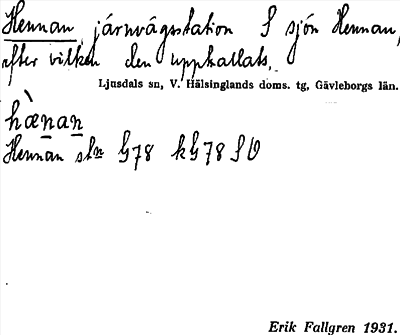 Hennan järnvägsstation S sjön Hennan,
efter vilken den uppkallats.
Ljusdals sn, V. Hälsinglands doms. tg, Gävleborgs län.
hὰenan
Hennan stn G78 kG78 SO
Erik Fallgren 1931.